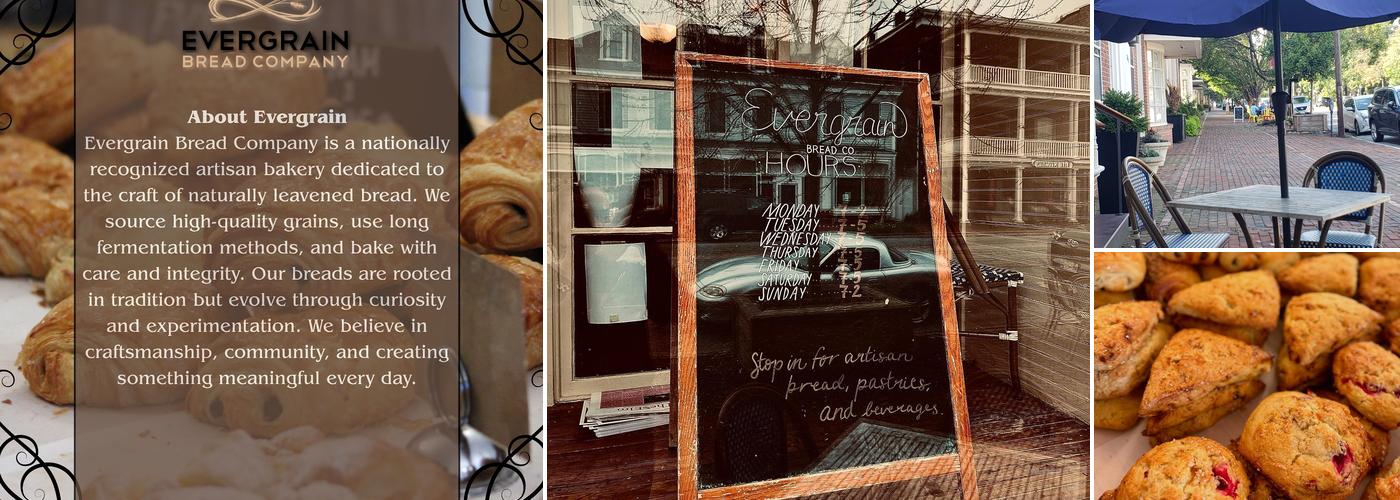 EVERGRAIN
BREAD COMPANY
About Evergrain
Evergrain Bread Company is a nationally
recognized artisan bakery dedicated to
the craft of naturally leavened bread. We
source high-quality grains, use long
fermentation methods, and bake with
care and integrity. Our breads are rooted
in tradition but evolve through curiosity
and experimentation. We believe in
craftsmanship, community, and creating
something meaningful every day.
Evergrain
BREAD CO.
HOURS
MONDAY
TUESDAY
WEDNESDAY
THURSDAY
FRIDAY
SATURDAY
SUNDAY 7-2
Stop in for artisan
bread, pastries,
and beverages.